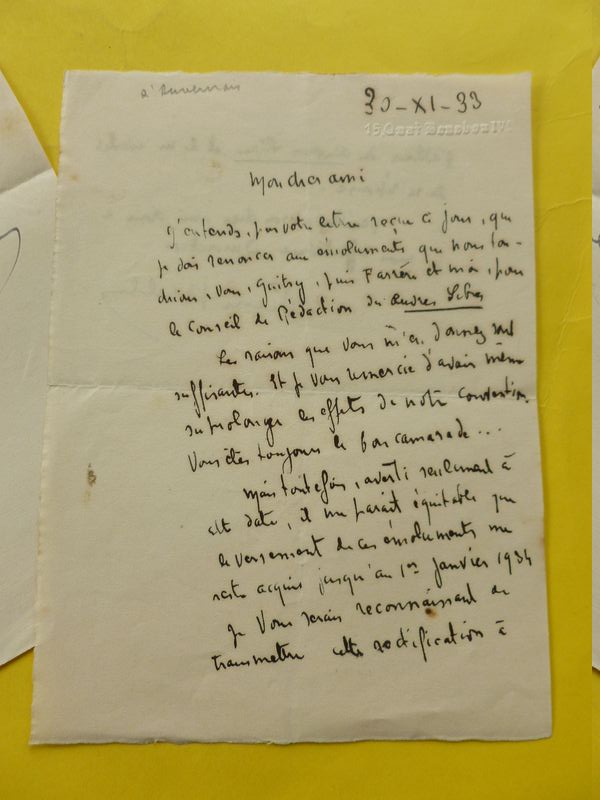 d'Duvernois
30-XI-33
15, Quai Bourbon IVe
Mon cher ami
J'entends, par votre lettre reçue ce jour, que
je dois renoncer aux émoluments que nous tou-
chions, vous, Guitry, puis Farrère et moi, pour
le Conseil de Rédaction des Œuvres Libres
Les raisons que vous m'en donnez sont
suffisantes. Et je vous remercie d'avoir même
su prolonger les effets de notre convention.
Vous êtes toujours le bon camarade...
Mais toutefois, averti seulement à
cette date, il me paraît équitable que
le versement de ces émoluments me
reste acquis jusqu'au 1er Janvier 1934
Je vous serais reconnaissant de
transmettre cette rectification à